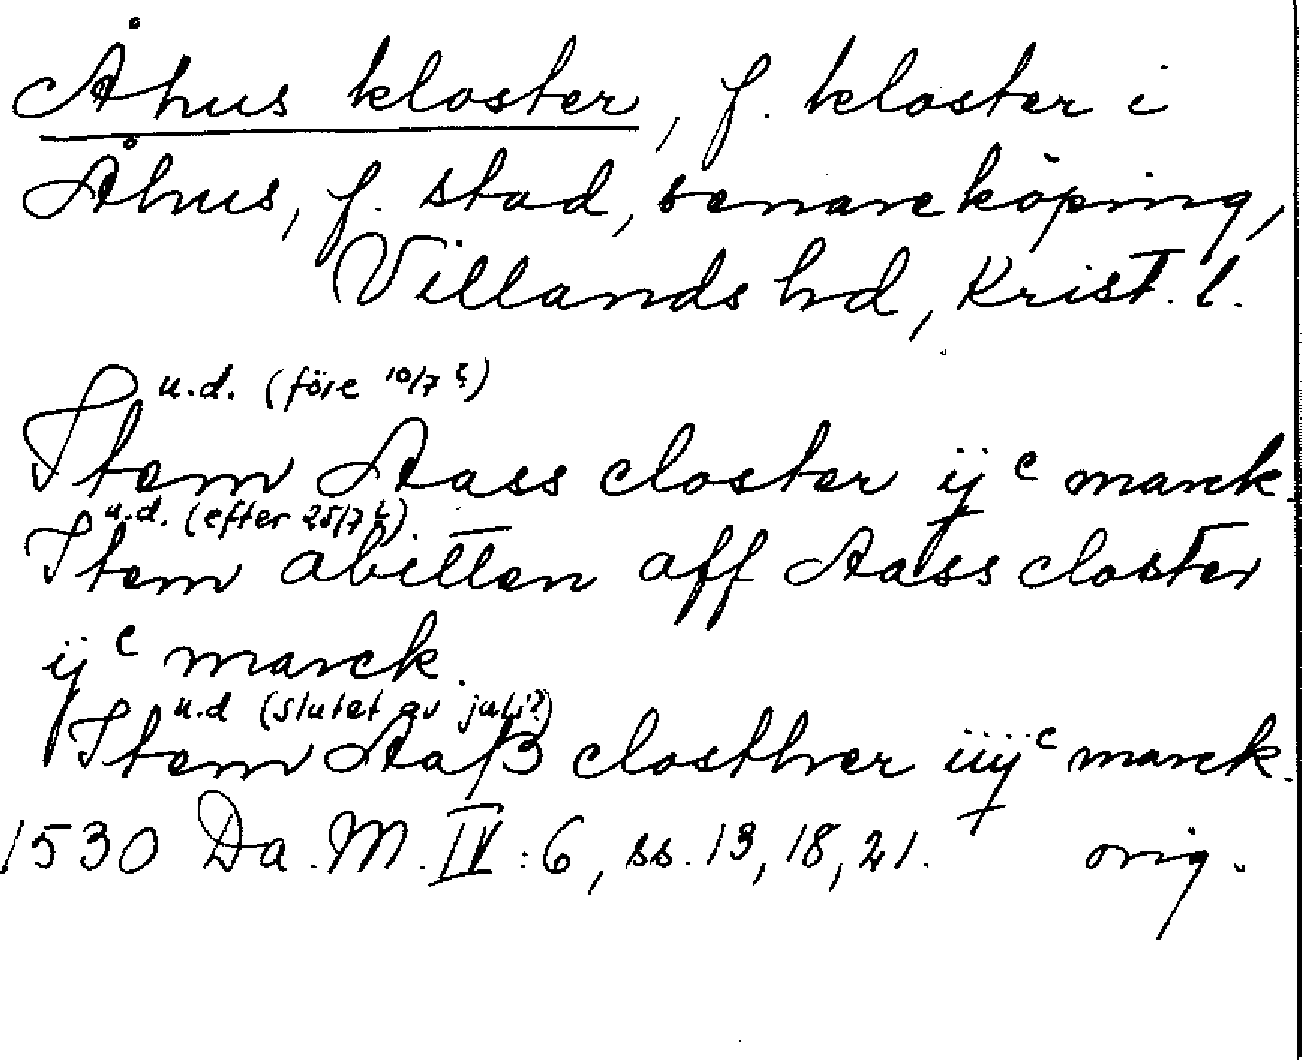 Åhus kloster, f. kloster i
Åhus, f. stad, senare köping,
Villands hd, Krist. l.
u.d. (före 10/7 ?)
Item Aass closter ij c marck.
u.d. (efter 25/7 ?)
Item abitten aff Aass closter
ij c marck.
u.d (slutet av juli?)
Item Aaß closther iiij c marck.
1530 Da. M. IV : 6, ss. 13, 18, 21. orig.